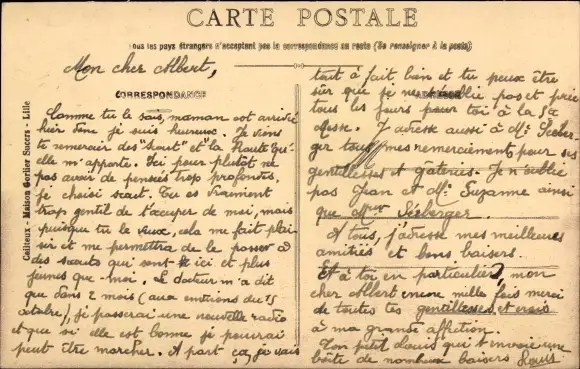 CARTE POSTALE
Tous les pays étrangers n'acceptent pas la correspondance au recto (Se renseigner à la poste)
Cailteux - Maison Gorlier Succrs - Lille
CORRESPONDANCE
Mon cher Albert,
Comme tu le sais, maman est arrivée
hier donc je suis heureux. Je viens
te remercier des "scout" et la
elle m'apporte. Ici pour plutôt ne
pas avoir de pensées trop profondes,
je choisi scout. Tu es vraiment
trop gentil de t'occuper de moi, mais
puisque tu le veux, cela me fait plai-
sir et me permettra de le passer à
des scouts qui sont ici et plus
jeunes que moi. Le docteur m'a dit
que dans 2 mois (aux environs du 15
octobre), je passerai une nouvelle radio
et que si elle est bonne je pourrai
peut être marcher. A part ça, je vais
tout à fait bien et tu peux être
sûr que je ne t'oublie pas et prie
tous les jours pour toi à la Ste
Messe. J'adresse aussi à Mr Seeber-
ger tous mes remerciements pour ses
gentillesses et gâteries. Je n'oublie
pas Jean et Me Suzanne ainsi
que Mme Seeberger.
A tous, j'adresse mes meilleures
amitiés et bons baisers.
Et à toi en particulier, mon
cher Albert encore mille fois merci
de toutes tes gentillesses, et crois
à ma grande affection.
Ton petit Louis qui t'envoie une
boîte de nombreux baisers Louis